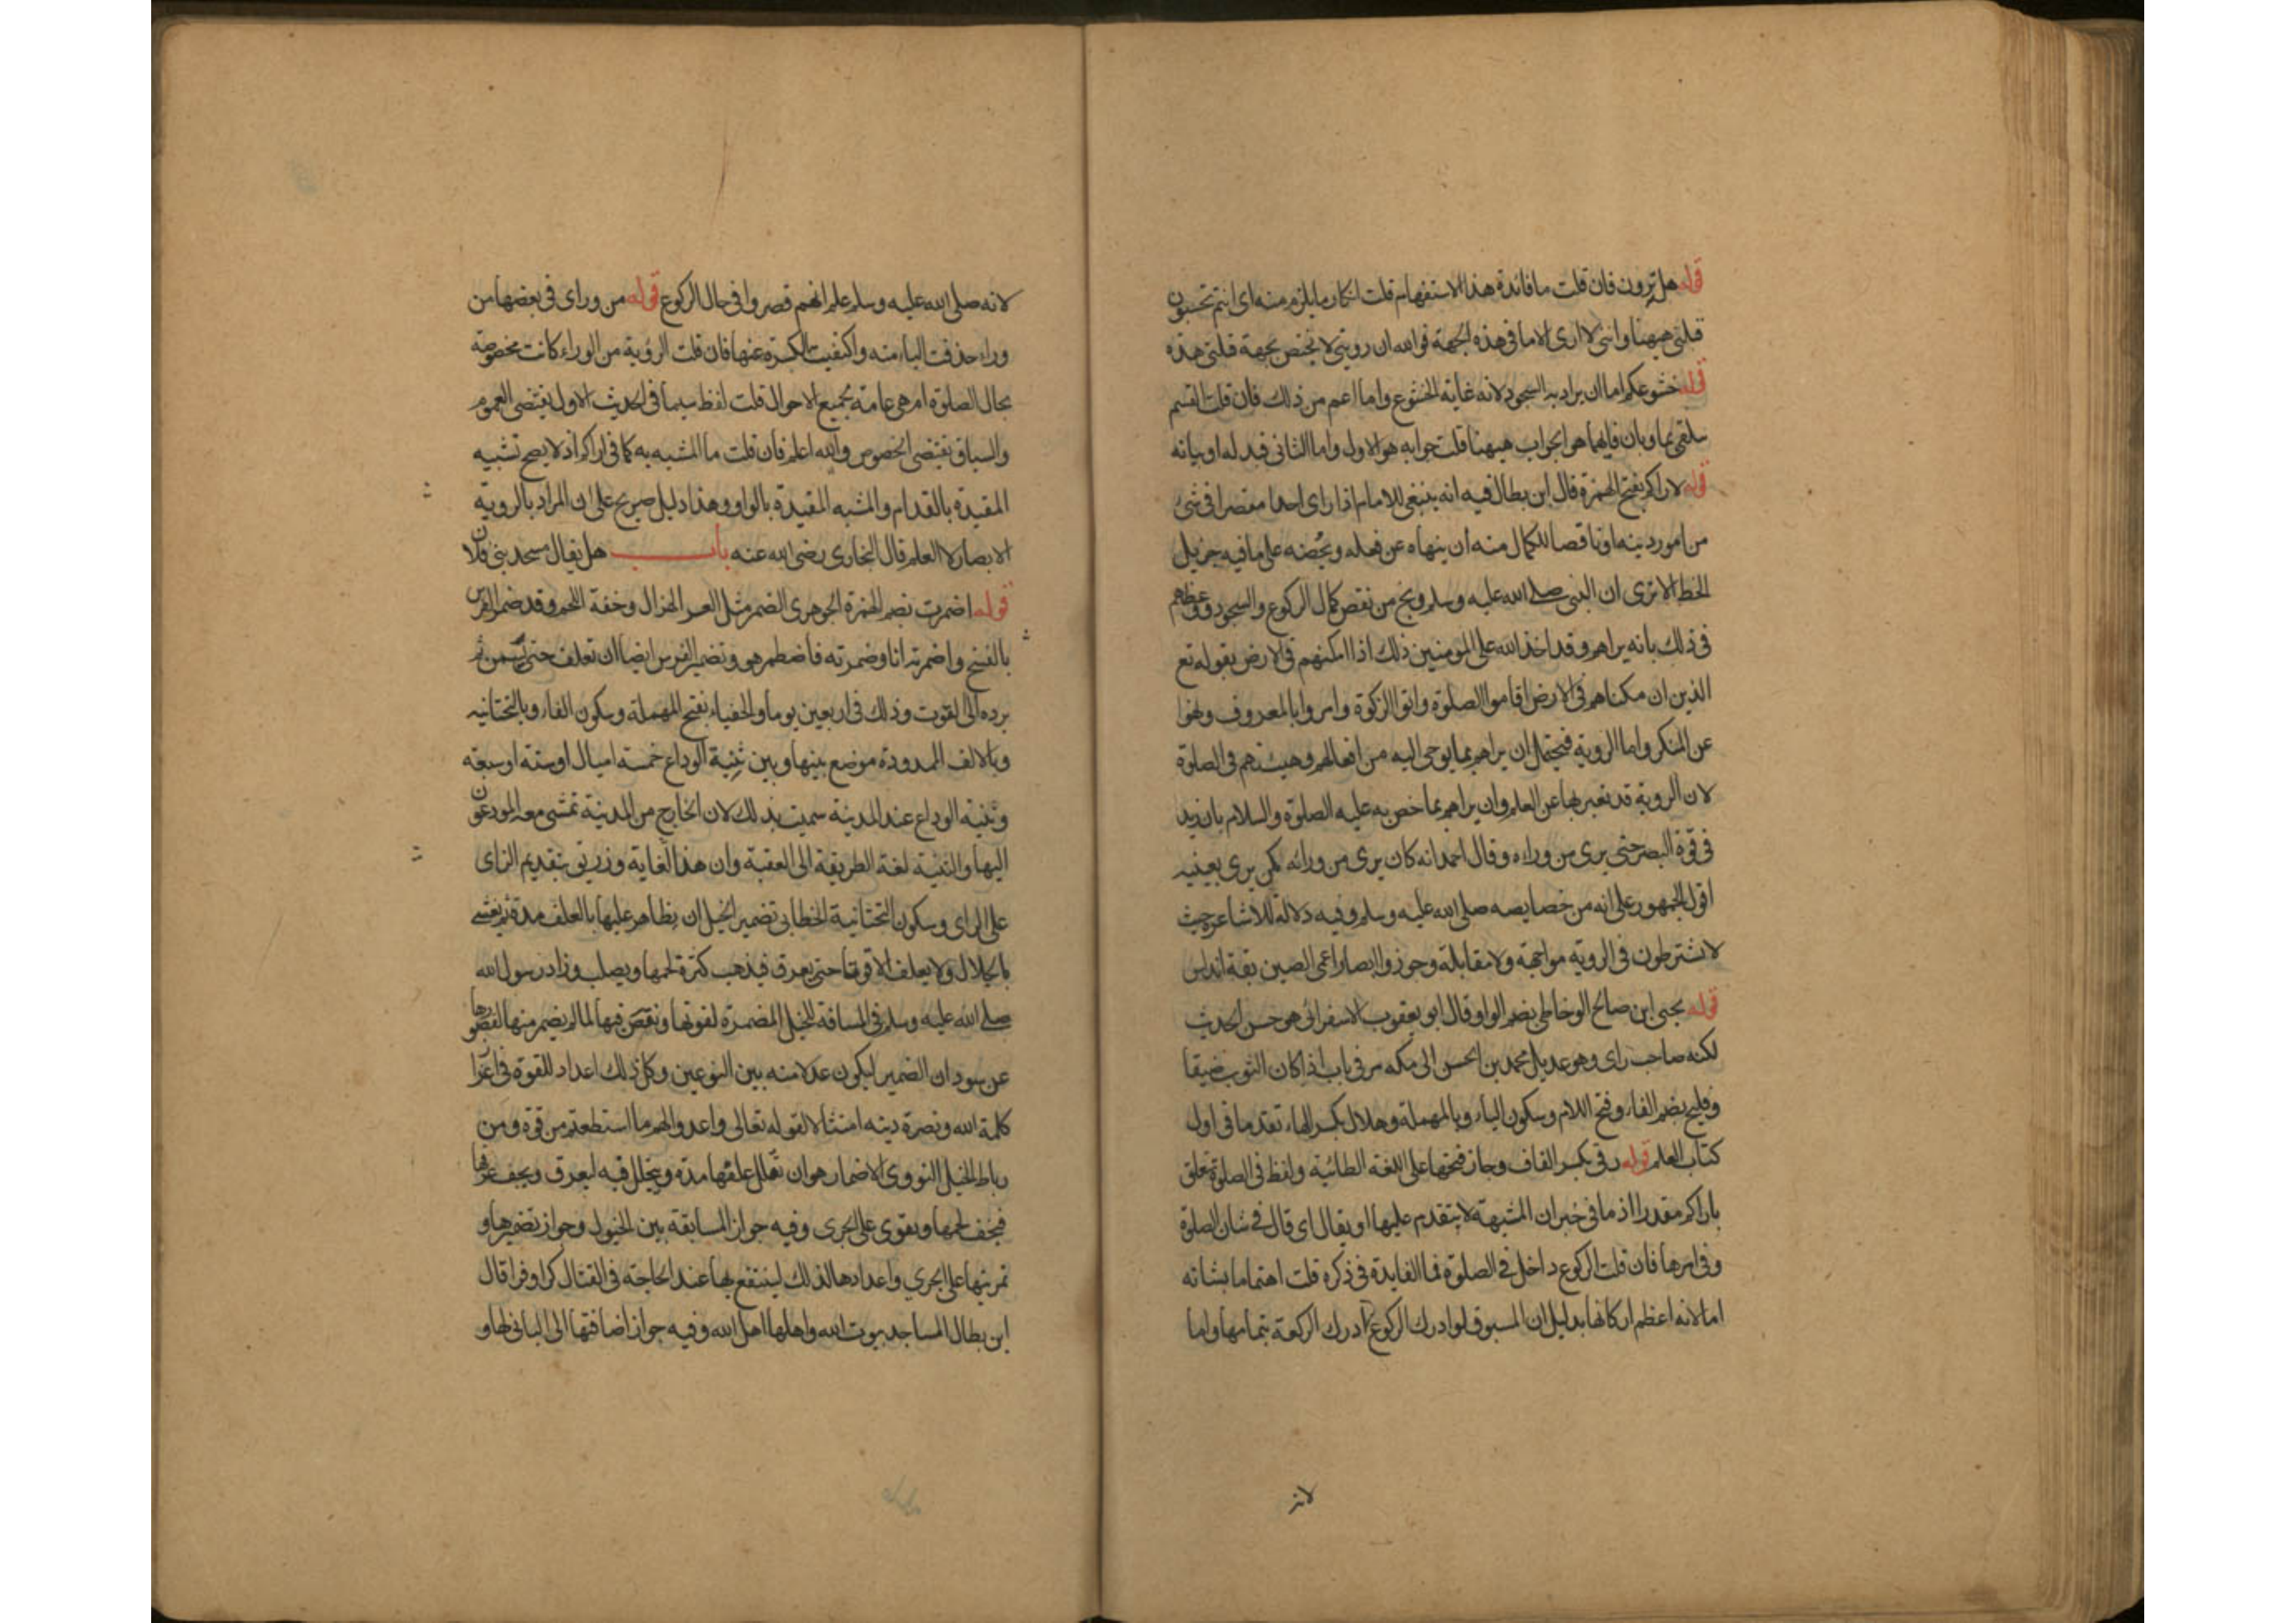 قوله هل ترون فان قلت ما فائدة هذا الاستفهام قلت انكار ما يلزم منه اى انتم تحسبون
قبلتى ههنا وانى لا ارى الا ما فى هذه الجهة فوالله ان رويتى لا تختص بجهة قبلتى هذه
قوله خشوعكم اما ان يراد به السجود لانه غاية الخشوع واما اعم من ذلك فان قلت القسم
يتلقى بما وبان فايهما هو الجواب ههنا قلت جوابه هو الاول واما الثانى فبدل له او بيانه
قوله لاراكم بفتح الهمزة قال ابن بطال فيه انه ينبغى للامام اذا راى احدا مقصرا فى شئ
من امور دينه او ناقصا للكمال منه ان ينهاه عن فعله ويحضه على ما فيه جزيل
الحظ الا ترى ان النبى صلى الله عليه وسلم وبخ من نقص كمال الركوع والسجود ووعظهم
فى ذلك بانه يراهم وقد اخذ الله على المومنين ذلك اذا امكنهم فى الارض بقوله تع
الذين ان مكناهم فى الارض اقاموا الصلوة واتوا الزكوة وامروا بالمعروف ونهوا
عن المنكر واما الروية فيحتمل ان يراهم بما يوحى اليه من افعالهم وهيئتهم فى الصلوة
لان الروية قد تعبر بها عن العلم وان يراهم بما خص به عليه الصلوة والسلام بان زيد
فى قوة البصر حتى يرى من وراءه وقال احمد انه كان يرى من ورائه كمن يرى بعينيه
اقول الجمهور على انه من خصايصه صلى الله عليه وسلم وفيه دلالة للاشاعرة حيث
لا تشترطون فى الروية مواجهة ولا مقابلة وجوزوا ابصار اعمى الصين بقة اندلس
قوله يحيى ابن صالح الوحاظى بضم الواو وقال ابو يعقوب الاسفرائى هو حسن الحديث
لكنه صاحب راى وهو عديل محمد بن الحسن الى مكه مر فى باب اذا كان الثوب ضيقا
وفليح بضم الفاء وفتح اللام وسكون الياء وبالمهملة وهلال بكسر الهاء تقدما فى اول
كتاب العلم قوله رقى بكسر القاف وجاز فتحها على اللغة الطائية ولفظ فى الصلوة تعلق
باراكم مقدرا اذ ما فى خبر ان المشبهة لا يتقدم عليها او يقال اى قال فى شان الصلوة
وفى امرها فان قلت الركوع داخل فى الصلوة فما الفايدة فى ذكره قلت اهتماما بشانه
اما لانه اعظم اركانها بدليل ان المسبوق لو ادرك الركوع ادرك الركعة بتمامها واما
لانه
لانه صلى الله عليه وسلم علم انهم قصروا فى حال الركوع قوله من وراى فى بعضها من
وراء حذفت الياء منه واكتفيت بالكسرة عنها فان قلت الروية من الوراء كانت مخصوصة
بحال الصلوة ام هى عامة لجميع الاحوال قلت لفظ سيما فى الحديث الاول يقتضى العموم
والسياق يقتضى الخصوص والله اعلم فان قلت ما المشبه به كما فى اراكم اذ لا يصح تشبيه
المقيدة بالقدام والمشبه المقيدة بالواو وهذا دليل صريح على ان المراد بالروية
الابصار لا العلم قال البخارى رضى الله عنه باب هل يقال مسجد بنى فلان
قوله اضمرت بضم الهمزة الجوهرى الضمر مثل العسر الهزال وخفة اللحم وقد ضمر الفرس
بالفتح واضمرته انا وضمرته فاضطمر هو وتضمير الفرس ايضا ان تعلف حتى يسمن ثم
يرده الى القوت وذلك فى اربعين يوما والحفياء بفتح المهملة وسكون الفاء وبالتحتانيه
وبالالف الممدودة موضع بينها وبين ثنية الوداع خمسة اميال او ستة او سبعة
وثنية الوداع عند المدينة سميت بذلك لان الخارج من المدينة تمشى معه المودعون
اليها والثنية لغة الطريقة الى العقبة وان هذا الغاية وزريق بتقديم الزاى
على الراى وسكون التحتانية الخطابى تضمير الخيل ان يظاهر عليها بالعلف مدة ثم يغشى
بالجلال ولا يعلف الا قوتا حتى يعرق فيذهب كثرة لحمها ويصلب وزاد رسول الله
صلى الله عليه وسلم فى المسافة للخيل المضمرة لقوتها ونقص فيها لما لم يضمر منها لقصورها
عن سود ان الضمير ليكون عدلا منه بين النوعين وكل ذلك اعداد للقوة فى اعزا
كلمة الله ونصرة دينه امتثالا لقوله تعالى واعدوا لهم ما استطعتم من قوة ومن
رباط الخيل النووى الاضمار هو ان تقلل علفها مدة ويجلل فيه ليعرق ويجف عرقها
فيخف لحمها ويقوى على الجرى وفيه جواز المسابقة بين الخيول وجواز تضميرها و
تمرينها على الجرى واعدادها لذلك لينتفع بها عند الحاجة فى القتال كرا وفرا قال
ابن بطال المساجد بيوت الله واهلها اهل الله وفيه جواز اضافتها الى البانى لها و